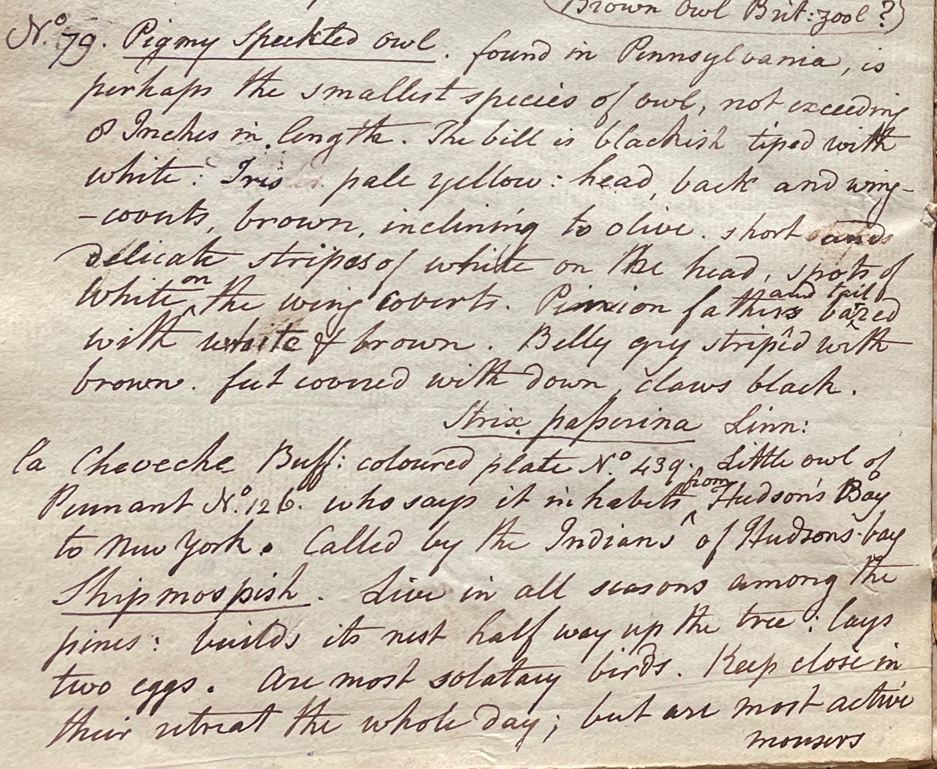 Brown Owl Brit: zool?)
No. 79. Pigmy Speckted owl. found in Pennsylvania, is
perhaps the smallest species of owl, not exceeding
8 Inches in length. The bill is blackish tiped with
white: Iris pale yellow: head, back and wing-
-coverts, brown, inclining to olive. short and
delicate stripes of white on the head, spots of
White on the wing coverts. Pinion fathers and tail bared
with white & brown. Belly grey strip'd with
brown. feet covered with down, claws black.
Strix passerina Linn:
la Cheveche Buff: coloured plate No. 439. Little owl of
Pennant No. 126. who says it inhabits from Hudson's Bay
to New York. Called by the Indians of Hudsons bay
Shipmospish. Live in all seasons among the
pines: builds its nest half way up the tree: lays
two eggs. Are most solatary birds. Keep close in
their retreat the whole day; but are most active
mousers